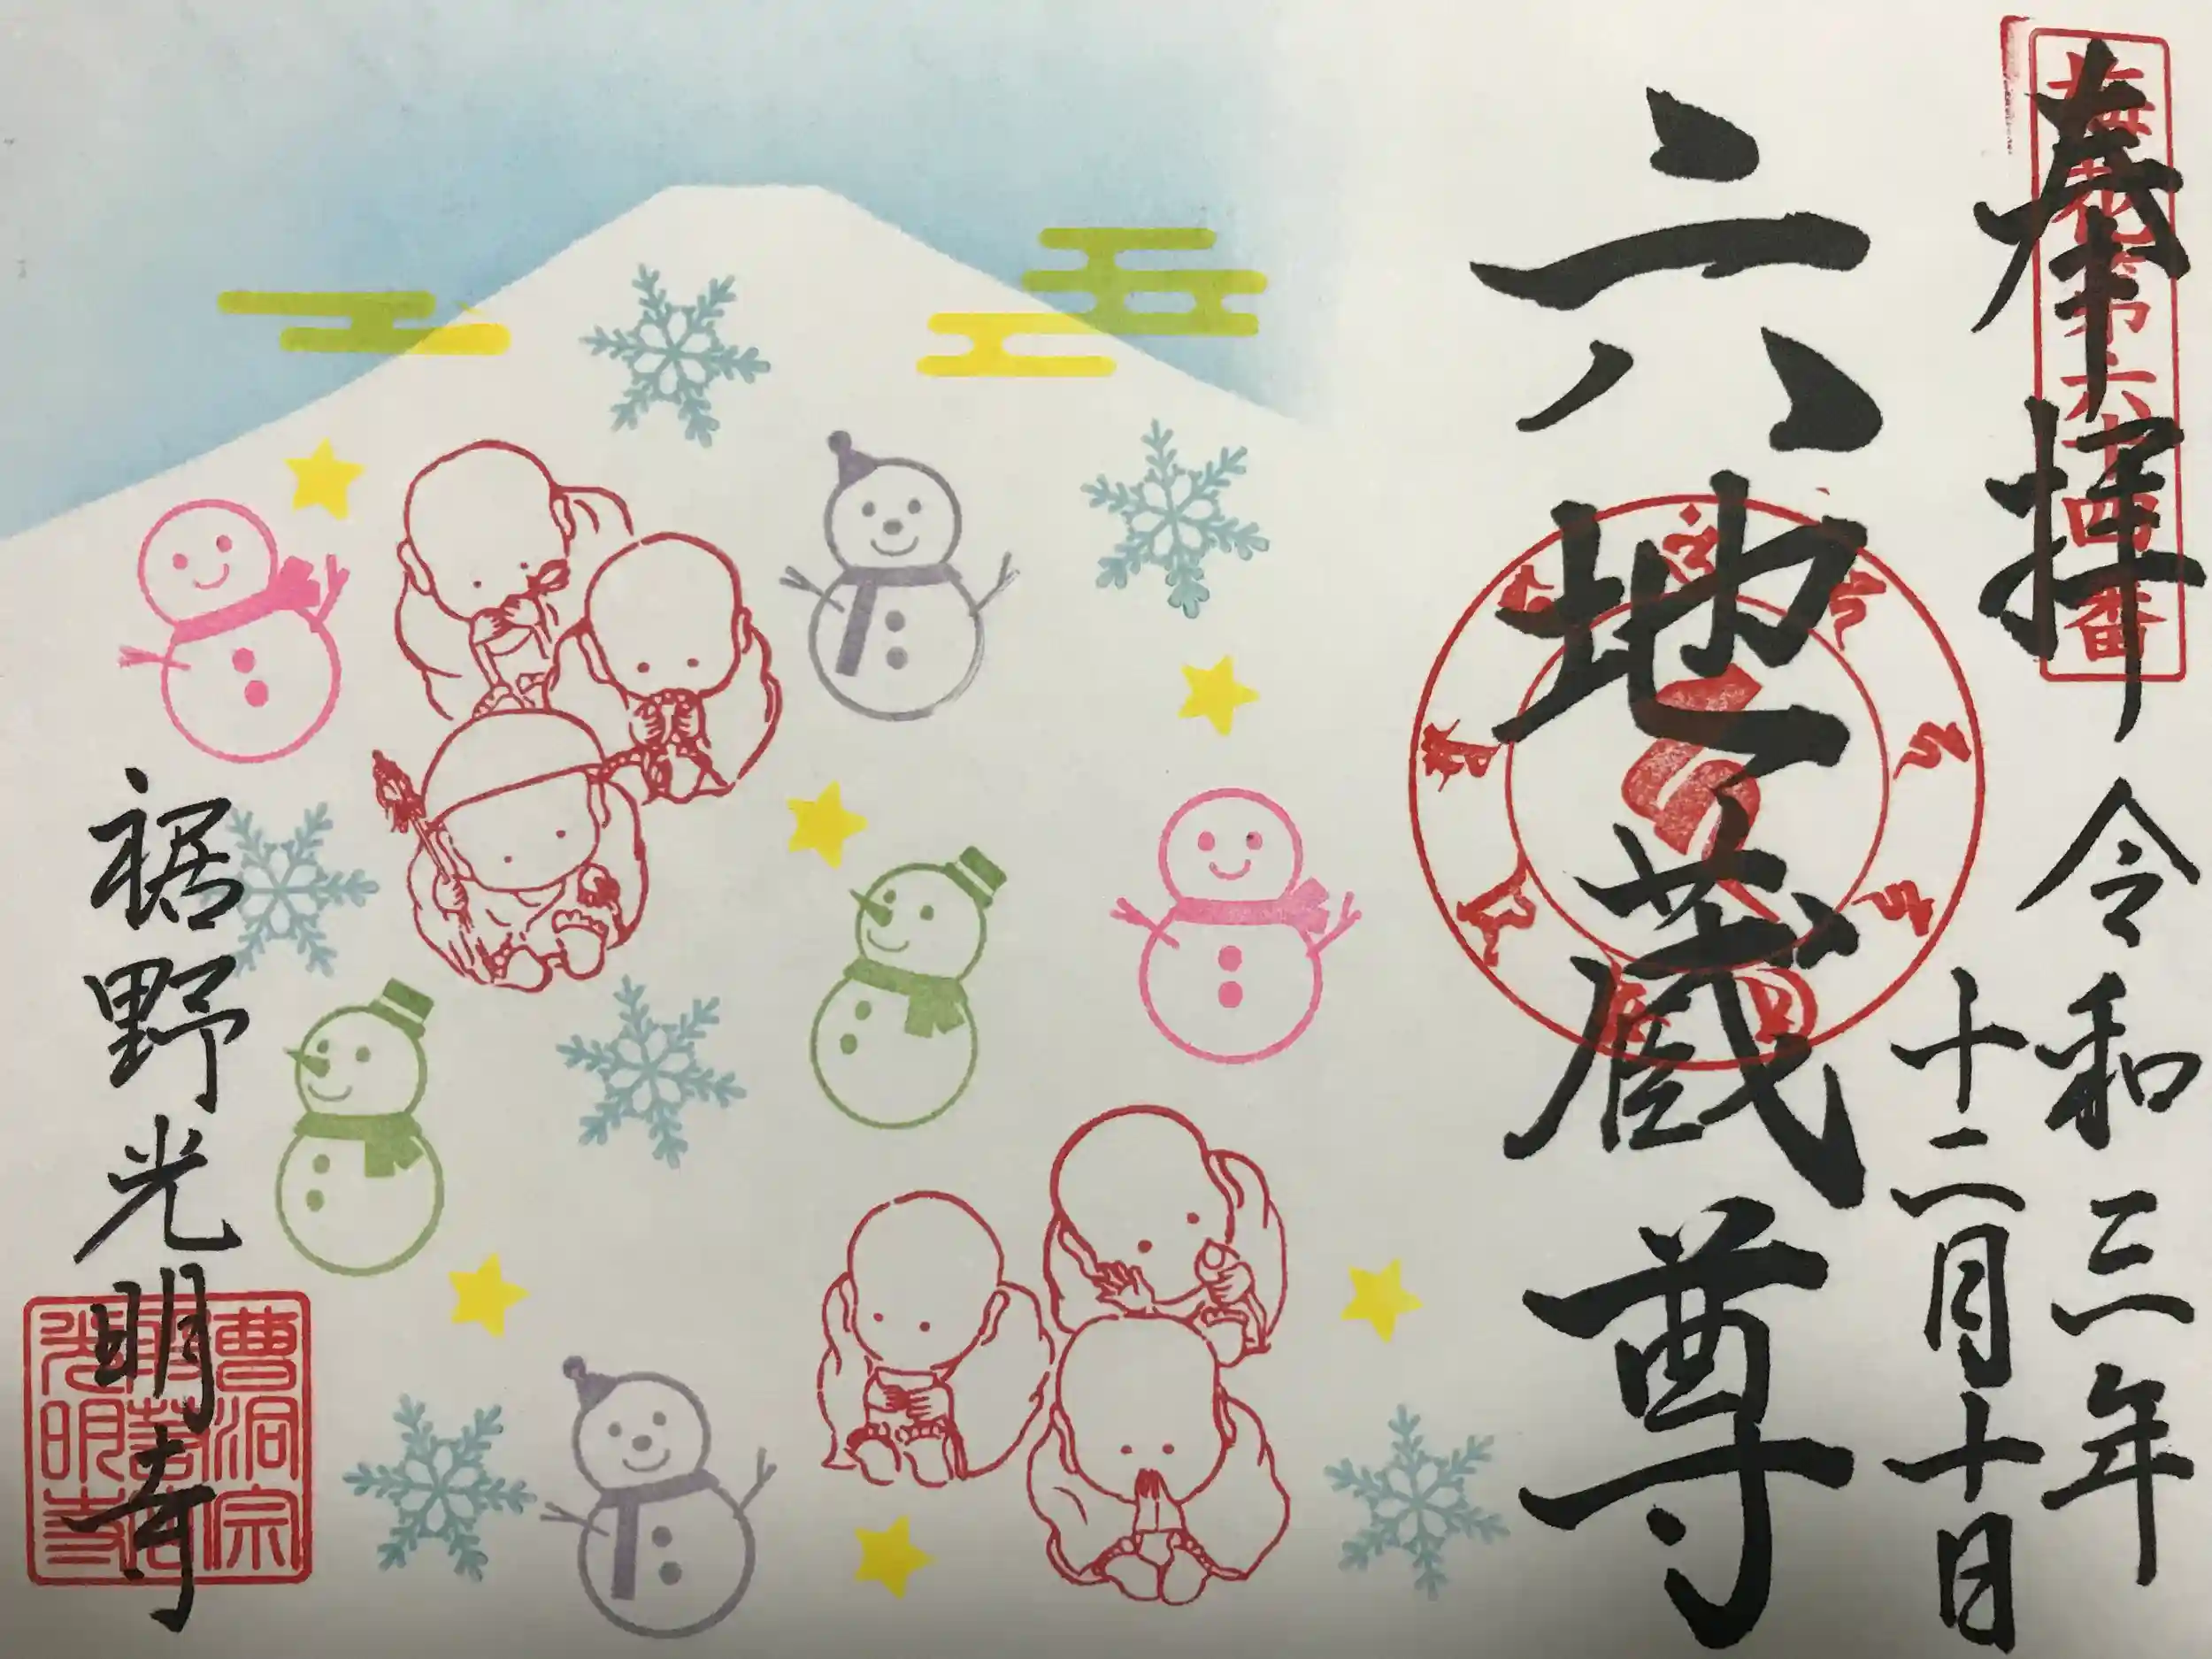 奉拝
第六十四番
令和三年
十二月十日
六地蔵尊
裾野光明寺
曹洞宗
光明寺